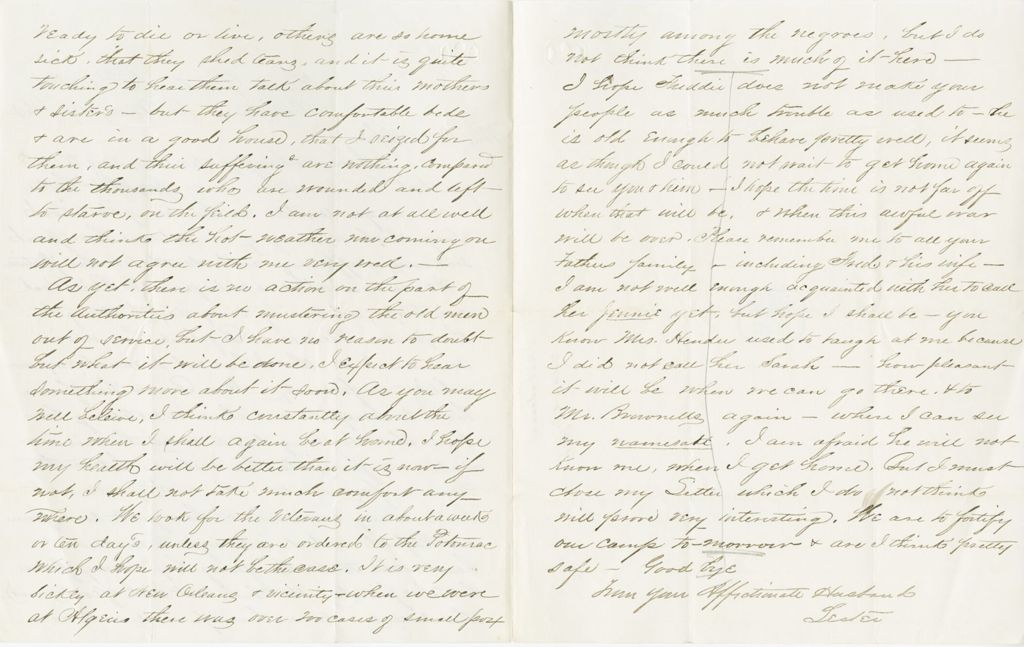 ready to die or live, others are so home
sick, that they shed tears, and it is quite
touching to hear them talk about their mothers
& sisters - but they have comfortable beds
& are in a good house, that I seized for
them, and their sufferings are nothing, compared
to the thousands who are wounded and left
to starve, on the field. I am not at all well
and think the hot weather now coming on
will not agree with me very well. —
As yet there is no action on the part of
the authorities about mustering the old men
out of service, but I have no reason to doubt
but what it will be done, I expect to hear
something more about it soon. As you may
well beleive, I think constantly about the
time when I shall again be at home. I hope
my health will be better than it is now - if
not, I shall not take much comfort any-
where. We look for the veterans in about a week
or ten days, unless they are ordered to the Potomac
which I hope will not be the case. It is very
sickly at New Orleans & vicinity - when we were
at Algiers there was over 200 cases of small pox
mostly among the negroes, but I do
not think there is much of it here —
I hope Freddie does not make your
people as much trouble as used to - he
is old enough to behave pretty well, it seems
as though I could not wait to get home again
to see you & him - I hope the time is not far off
when that will be, & when this awful war
will be over. Please remember me to all your
Fathers family - including Fred & his wife —
I am not well enough acquainted with her to call
her Jennie yet, but hope I shall be - you
know Mrs. used to laugh at me because
I did not call her Sarah — how pleasant
it will be when we can go there, & to
Mr. Brownells again — where I can see
my namesake. I am afraid he will not
know me, when I get home. But I must
close my Letter which I do not think
will prove very interesting. We are to fortify
our camp to-morrow & are I think pretty
safe - Good bye
From your Affectionate Husband
Lester